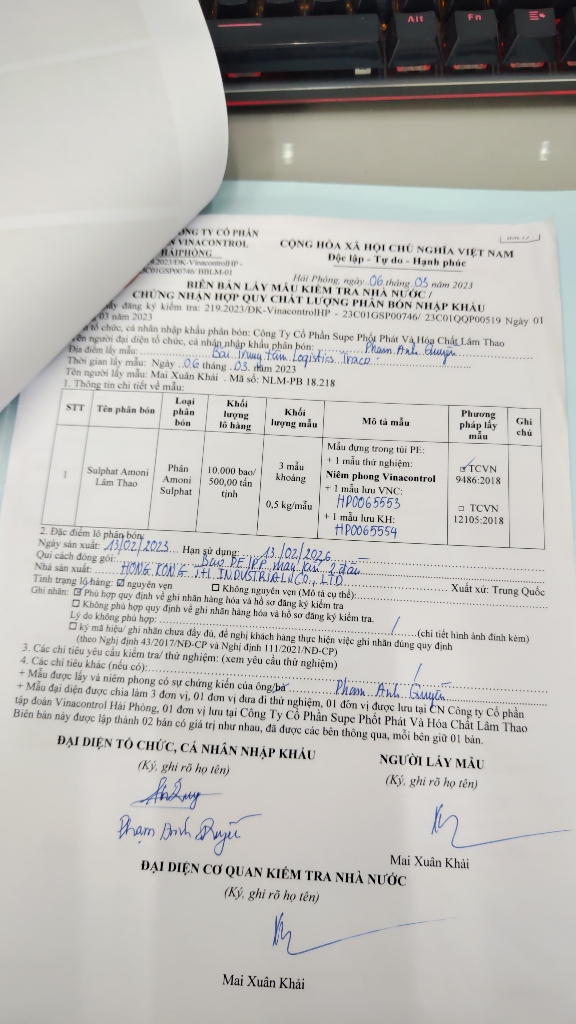 Alt
Fn
NG TY CỔ PHẦN
N VINACONTROL
HẢI PHÒNG
CỘNG HÒA XÃ HỘI CHỦ NGHĨA VIỆT NAM
Độc lập - Tự do - Hạnh phúc
2023/ĐK-VinacontrolHP -
23C01GSP00746/ BBLM-01
Hải Phòng, ngày 06 tháng 03 năm 2023
BIÊN BẢN LẤY MẪU KIỂM TRA NHÀ NƯỚC /
CHỨNG NHẬN HỢP QUY CHẤT LƯỢNG PHÂN BÓN NHẬP KHẨU
ấy đăng ký kiểm tra: 219.2023/ĐK-VinacontrolHP - 23C01GSP00746/ 23C01QQP00519 Ngày 01
03 năm 2023
tổ chức, cá nhân nhập khẩu phân bón: Công Ty Cổ Phần Supe Phốt Phát Và Hóa Chất Lâm Thao
ên người đại diện tổ chức, cá nhân nhập khẩu phân bón: Phạm Anh Quyền
Địa điểm lấy mẫu: Bãi Trung tâm Logistics Traco.
Thời gian lấy mẫu: Ngày 06 tháng 03 năm 2023
Tên người lấy mẫu: Mai Xuân Khải . Mã số: NLM-PB 18.218
1. Thông tin chi tiết về mẫu:
STT Tên phân bón Loại phân bón Khối lượng lô hàng Khối lượng mẫu Mô tả mẫu Phương pháp lấy mẫu Ghi chú
1 Sulphat Amoni Lâm Thao Phân Amoni Sulphat 10.000 bao/ 500,00 tấn tịnh 3 mẫu khoảng 0,5 kg/mẫu
Mẫu đựng trong túi PE:
+ 1 mẫu thử nghiệm:
Niêm phong Vinacontrol
+ 1 mẫu lưu VNC:
HP0065553
+ 1 mẫu lưu KH:
HP0065554
☑ TCVN 9486:2018
☐ TCVN 12105:2018
2. Đặc điểm lô phân bón:
Ngày sản xuất: 13/02/2023 Hạn sử dụng: 13/02/2026
Qui cách đóng gói: Bao PE/PP may kín 2 đầu
Nhà sản xuất: HONG KONG JHL INDUSTRIAL CO., LTD Xuất xứ: Trung Quốc
Tình trạng lô hàng: ☑ nguyên vẹn ☐ Không nguyên vẹn (Mô tả cụ thể):
Ghi nhãn: ☑ Phù hợp quy định về ghi nhãn hàng hóa và hồ sơ đăng ký kiểm tra
☐ Không phù hợp quy định về ghi nhãn hàng hóa và hồ sơ đăng ký kiểm tra.
Lý do không phù hợp: / (chi tiết hình ảnh đính kèm)
☐ ký mã hiệu/ ghi nhãn chưa đầy đủ, đề nghị khách hàng thực hiện việc ghi nhãn đúng quy định
(theo Nghị định 43/2017/NĐ-CP và Nghị định 111/2021/NĐ-CP)
3. Các chỉ tiêu yêu cầu kiểm tra/ thử nghiệm: (xem yêu cầu thử nghiệm)
4. Các chỉ tiêu khác (nếu có): /
+ Mẫu được lấy và niêm phong có sự chứng kiến của ông/bà Phạm Anh Quyền
+ Mẫu đại diện được chia làm 3 đơn vị, 01 đơn vị đưa đi thử nghiệm, 01 đơn vị được lưu tại CN Công ty Cổ phần
tập đoàn Vinacontrol Hải Phòng, 01 đơn vị lưu tại Công Ty Cổ Phần Supe Phốt Phát Và Hóa Chất Lâm Thao
Biên bản này được lập thành 02 bản có giá trị như nhau, đã được các bên thông qua, mỗi bên giữ 01 bản.
ĐẠI DIỆN TỔ CHỨC, CÁ NHÂN NHẬP KHẨU
NGƯỜI LẤY MẪU
(Ký, ghi rõ họ tên)
(Ký, ghi rõ họ tên)
Phạm Anh Quyền
Mai Xuân Khải
ĐẠI DIỆN CƠ QUAN KIỂM TRA NHÀ NƯỚC
(Ký, ghi rõ họ tên)
Mai Xuân Khải